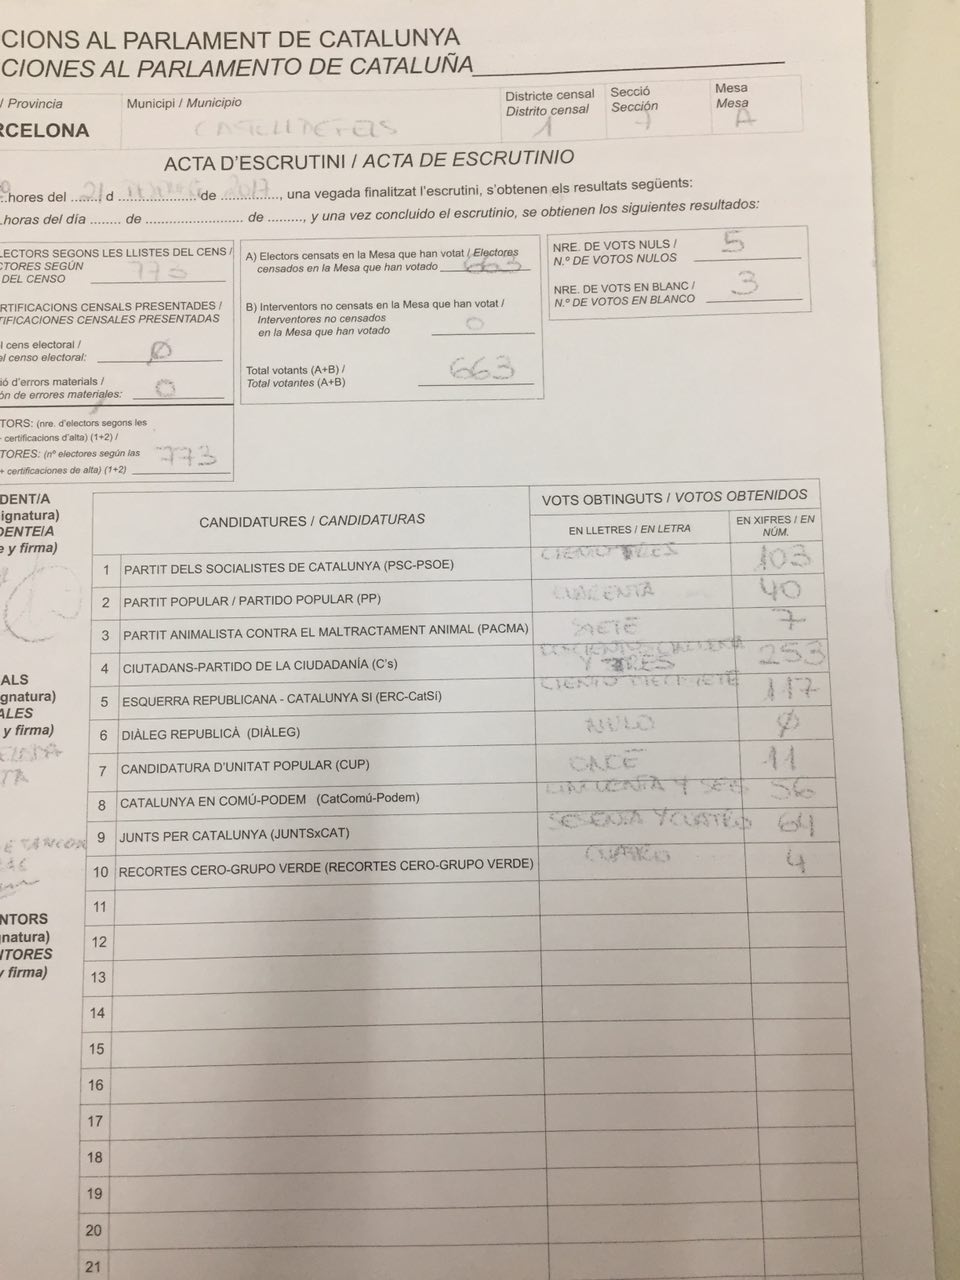 CIONS AL PARLAMENT DE CATALUNYA
CIONES AL PARLAMENTO DE CATALUÑA
/ Provincia
Municipi / Municipio
Districte censal
Distrito censal
Secció
Sección
Mesa
Mesa
RCELONA
1
7
A
ACTA D'ESCRUTINI / ACTA DE ESCRUTINIO
hores del 21 d de 2017, una vegada finalitzat l'escrutini, s'obtenen els resultats següents:
horas del día ........ de ........................ de ........., y una vez concluido el escrutinio, se obtienen los siguientes resultados:
LECTORS SEGONS LES LLISTES DEL CENS /
CTORES SEGÚN
DEL CENSO 773
RTIFICACIONS CENSALS PRESENTADES /
TIFICACIONES CENSALES PRESENTADAS
l cens electoral /
el censo electoral: Ø
ió d'errors materials /
ón de errores materiales: 0
TORS: (nre. d'electors segons les
+ certificacions d'alta) (1+2) /
TORES: (nº electores según las
+ certificaciones de alta) (1+2) 773
A) Electors censats en la Mesa que han votat / Electores
censados en la Mesa que han votado 663
B) Interventors no censats en la Mesa que han votat /
Interventores no censados
en la Mesa que han votado 0
Total votants (A+B) /
Total votantes (A+B) 663
NRE. DE VOTS NULS /
N.º DE VOTOS NULOS 5
NRE. DE VOTS EN BLANC /
N.º DE VOTOS EN BLANCO 3
DENT/A
ignatura)
DENTE/A
e y firma)
ALS
gnatura)
ALES
y firma)
NTORS
gnatura)
ITORES
y firma)
CANDIDATURES / CANDIDATURAS
VOTS OBTINGUTS / VOTOS OBTENIDOS
EN LLETRES / EN LETRA
EN XIFRES / EN NÚM.
1 PARTIT DELS SOCIALISTES DE CATALUNYA (PSC-PSOE) CIENTO TRES 103
2 PARTIT POPULAR / PARTIDO POPULAR (PP) CUARENTA 40
3 PARTIT ANIMALISTA CONTRA EL MALTRACTAMENT ANIMAL (PACMA) SIETE 7
4 CIUTADANS-PARTIDO DE LA CIUDADANÍA (C's) DOSCIENTOS CINCUENTA Y TRES 253
5 ESQUERRA REPUBLICANA - CATALUNYA SI (ERC-CatSí) CIENTO DIECISIETE 117
6 DIÀLEG REPUBLICÀ (DIÀLEG) NULO Ø
7 CANDIDATURA D'UNITAT POPULAR (CUP) ONCE 11
8 CATALUNYA EN COMÚ-PODEM (CatComú-Podem) CINCUENTA Y SEIS 56
9 JUNTS PER CATALUNYA (JUNTSxCAT) SESENTA Y CUATRO 64
10 RECORTES CERO-GRUPO VERDE (RECORTES CERO-GRUPO VERDE) CUATRO 4
11
12
13
14
15
16
17
18
19
20
21